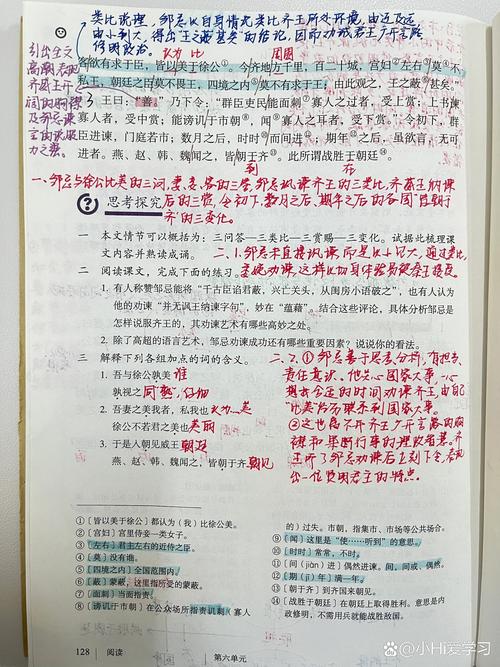 类比说理，邹忌从自身情况类比齐王所处环境，由近及远
由小到大，得出"王之蔽甚矣"的结论，因而劝诫君王广开言路
修明政治。
认为 比
周围
引出全文
高潮
客欲有求于臣，皆以美于徐公①。今齐地方千里，百二十城，宫妇②左右③莫④不
私王，朝廷之臣莫不畏王，四境之内⑤莫不有求于王：由此观之，王之蔽⑥甚矣。”
3 王曰：“善。”乃下令：“群臣吏民能面刺⑦寡人之过者，受上赏；上书谏
寡人者，受中赏；能谤讥于市朝⑧，闻⑨寡人之耳者，受下赏。”令初下，群
臣进谏，门庭若市；数月之后，时时⑩而间进⑪；期年⑫之后，虽欲言，无可
进者。燕、赵、韩、魏闻之，皆朝于齐⑬。此所谓战胜于朝廷⑭。
到
一、邹忌与徐公比美的三问，妻、妾、客的三答，邹忌讽谏齐王的三类比，齐威王纳谏
后的三赏，令初下、数月之后、期年之后的各国“皆朝于
齐”的三变化。
思考探究
一 本文情节可以概括为：三问答—三类比—三赏赐—三变化。试据此梳理课
文内容并熟读成诵。
二、1.邹忌不直接讽谏而是以小见大，通过类比
委婉劝谏，这样
二 阅读课文，完成下面的练习。
1. 有人称赞邹忌能将“千古臣谄君蔽，兴亡关头，从闺房小语破之”，也有人认为
他的劝谏“并无讽王纳谏字句”，妙在“蕴藉”。结合这些评论，具体分析邹忌是
怎样说服齐王的，其劝谏艺术有哪些高妙之处。
2. 除了高超的语言艺术，邹忌劝谏成功还有哪些重要因素？说说你的看法。
三 解释下列各组加点的词的含义。
1. 吾与徐公孰美 谁
孰视之 同“熟”，仔细
2. 吾妻之美我者，私我也 认为…美
徐公不若君之美也 美丽
3. 于是入朝见威王 朝廷
燕、赵、韩、魏闻之，皆朝于齐 朝见
二、2.①邹忌善于思考分析，有担当、
责任意识。他关心国家大事，一心
想去合适的时间劝谏齐王，由自己
比美皆而联系到国家大事。
②这也离不开齐王广开言路的胸
襟和果断行事的理政智慧。齐
王听了邹忌劝谏后立刻下令，表现
出一位贤明君王的特点。
①〔皆以美于徐公〕都认为（我）比徐公美。
②〔宫妇〕宫里侍妾一类女子。
③〔左右〕君主左右的近侍之臣。
④〔莫〕没有谁。
⑤〔四境之内〕全国范围内。
⑥〔蔽〕蒙蔽，这里指所受的蒙蔽。
⑦〔面刺〕当面指责。
⑧〔谤讥于市朝〕在公众场所指责讥刺（寡人
的）过失。市朝，指集市、市场等公共场合。
⑨〔闻〕这里是“使……听到”的意思。
⑩〔时时〕常常，不时。
⑪〔间（jiàn）进〕偶然进谏。间，间或、偶然。
⑫〔期（jī）年〕满一年。
⑬〔朝于齐〕到齐国来朝见。
⑭〔战胜于朝廷〕在朝廷上取得胜利。意思是内
政修明，不需用兵就能战胜敌国。
128 阅读
第六单元
@小Hi爱学习